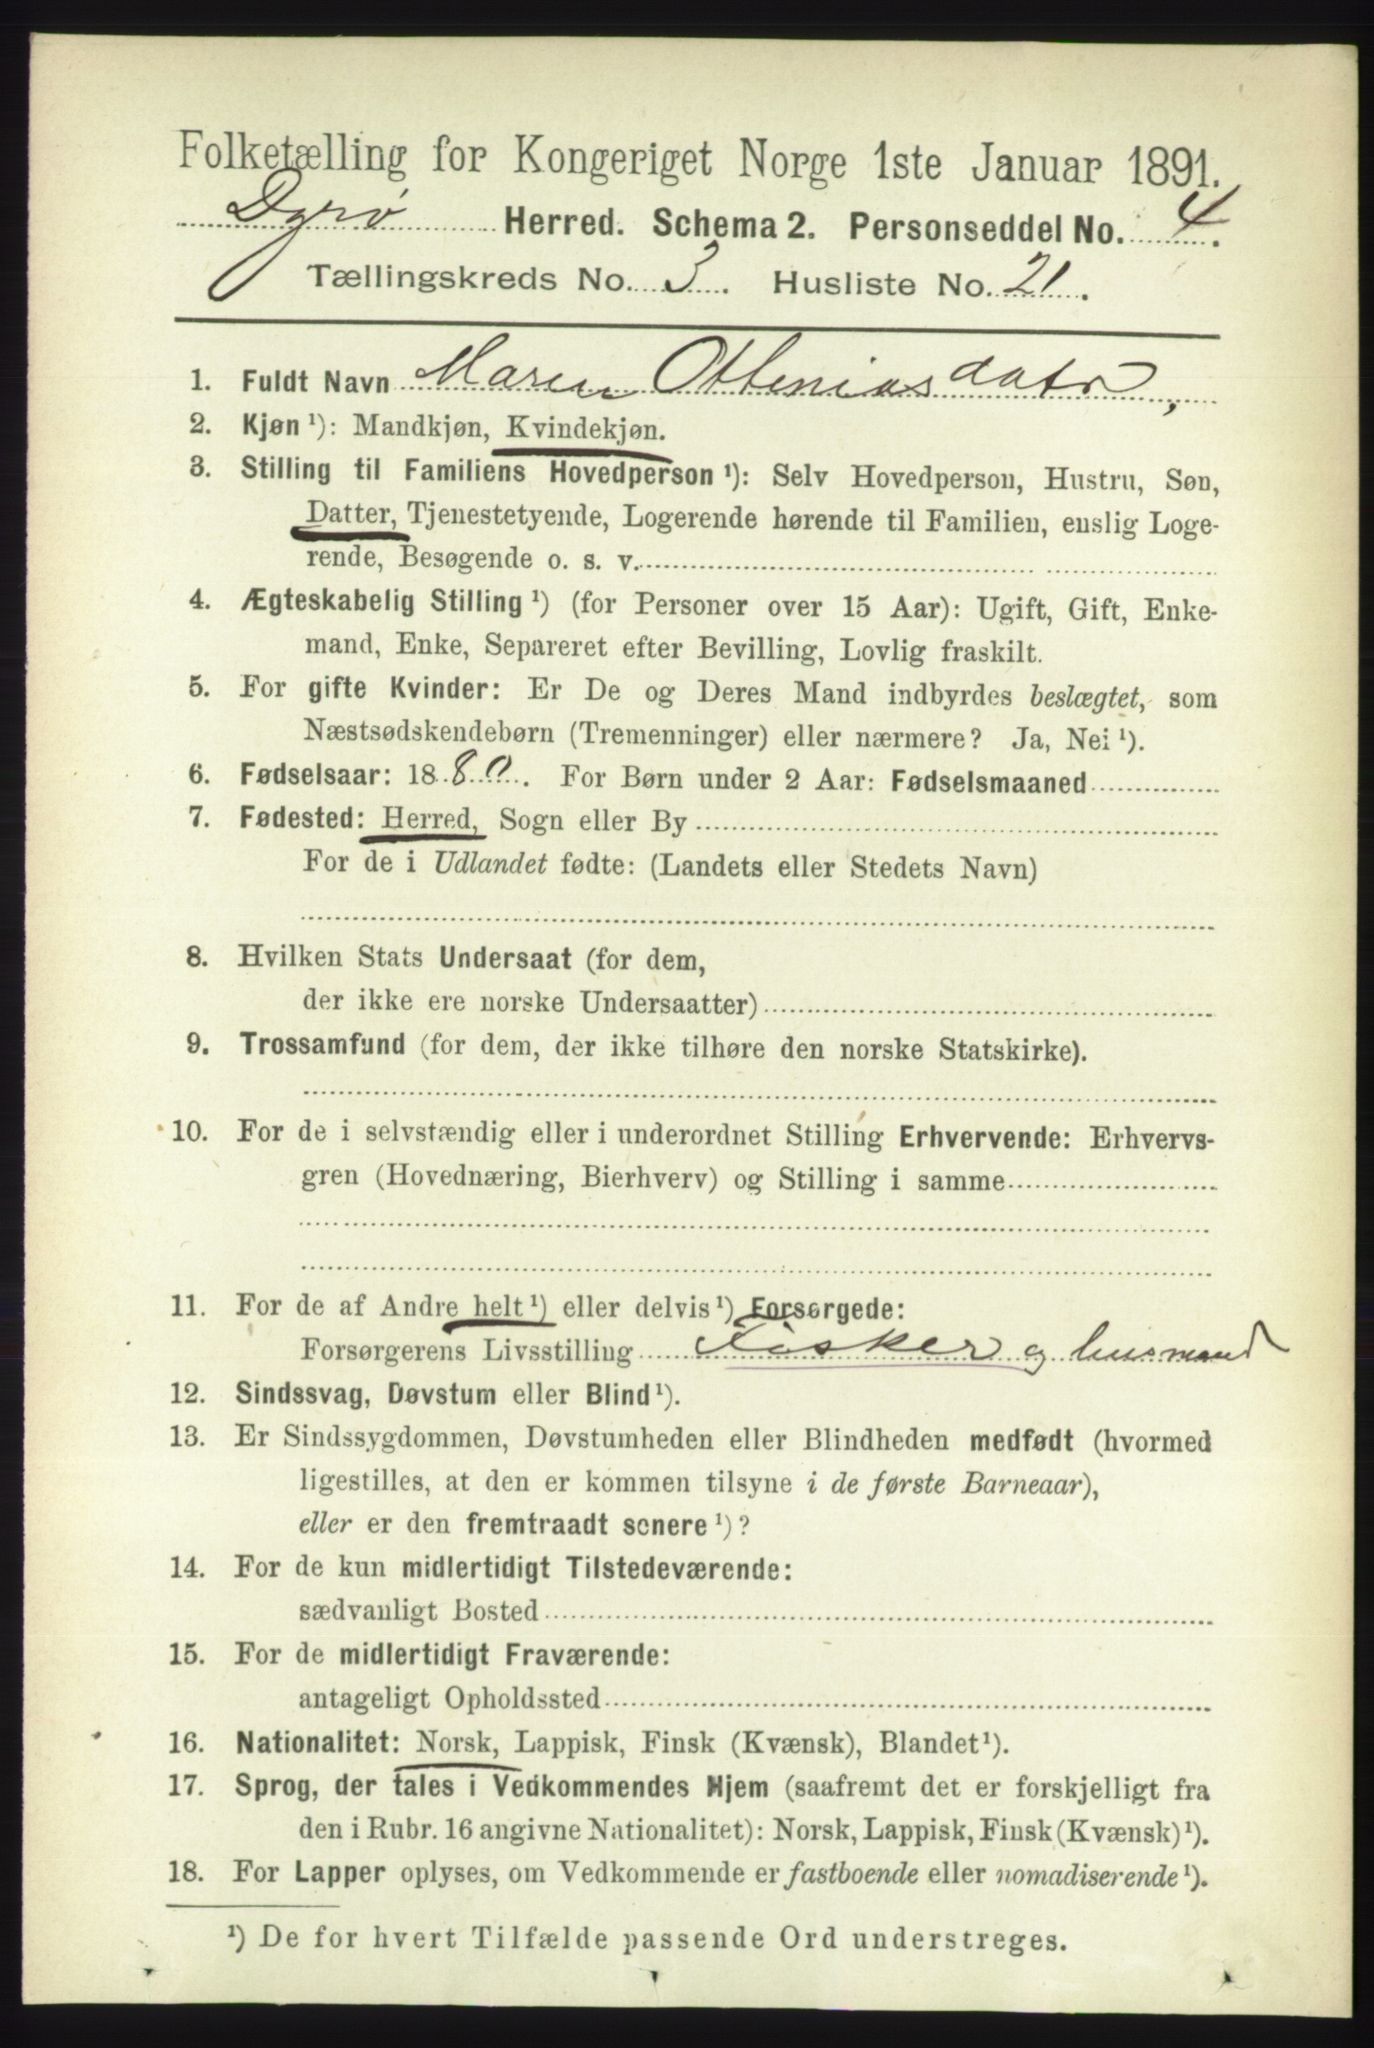 Folketælling for Kongeriget Norge 1ste Januar 1891.
Dyrø Herred. Schema 2. Personseddel No. 4.
Tællingskreds No. 3. Husliste No. 21.
1. Fuldt Navn Maren Otteniasdatr,
2. Kjøn ¹): Mandkjøn, Kvindekjøn.
3. Stilling til Familiens Hovedperson ¹): Selv Hovedperson, Hustru, Søn,
Datter, Tjenestetyende, Logerende hørende til Familien, enslig Loge-
rende, Besøgende o. s. v.
4. Ægteskabelig Stilling ¹) (for Personer over 15 Aar): Ugift, Gift, Enke-
mand, Enke, Separeret efter Bevilling, Lovlig fraskilt.
5. For gifte Kvinder: Er De og Deres Mand indbyrdes beslægtet, som
Næstsødskendebørn (Tremenninger) eller nærmere? Ja, Nei ¹).
6. Fødselsaar: 1880. For Børn under 2 Aar: Fødselsmaaned
7. Fødested: Herred, Sogn eller By
For de i Udlandet fødte: (Landets eller Stedets Navn)
8. Hvilken Stats Undersaat (for dem,
der ikke ere norske Undersaatter)
9. Trossamfund (for dem, der ikke tilhøre den norske Statskirke).
10. For de i selvstændig eller i underordnet Stilling Erhvervende: Erhvervs-
gren (Hovednæring, Bierhverv) og Stilling i samme
11. For de af Andre helt ¹) eller delvis ¹) Forsørgede:
Forsørgerens Livsstilling Fisker og husmand
12. Sindssvag, Døvstum eller Blind ¹).
13. Er Sindssygdommen, Døvstumheden eller Blindheden medfødt (hvormed
ligestilles, at den er kommen tilsyne i de første Barneaar),
eller er den fremtraadt senere ¹)?
14. For de kun midlertidigt Tilstedeværende:
sædvanligt Bosted
15. For de midlertidigt Fraværende:
antageligt Opholdssted
16. Nationalitet: Norsk, Lappisk, Finsk (Kvænsk), Blandet ¹).
17. Sprog, der tales i Vedkommendes Hjem (saafremt det er forskjelligt fra
den i Rubr. 16 angivne Nationalitet): Norsk, Lappisk, Finsk (Kvænsk) ¹).
18. For Lapper oplyses, om Vedkommende er fastboende eller nomadiserende ¹).
¹) De for hvert Tilfælde passende Ord understreges.